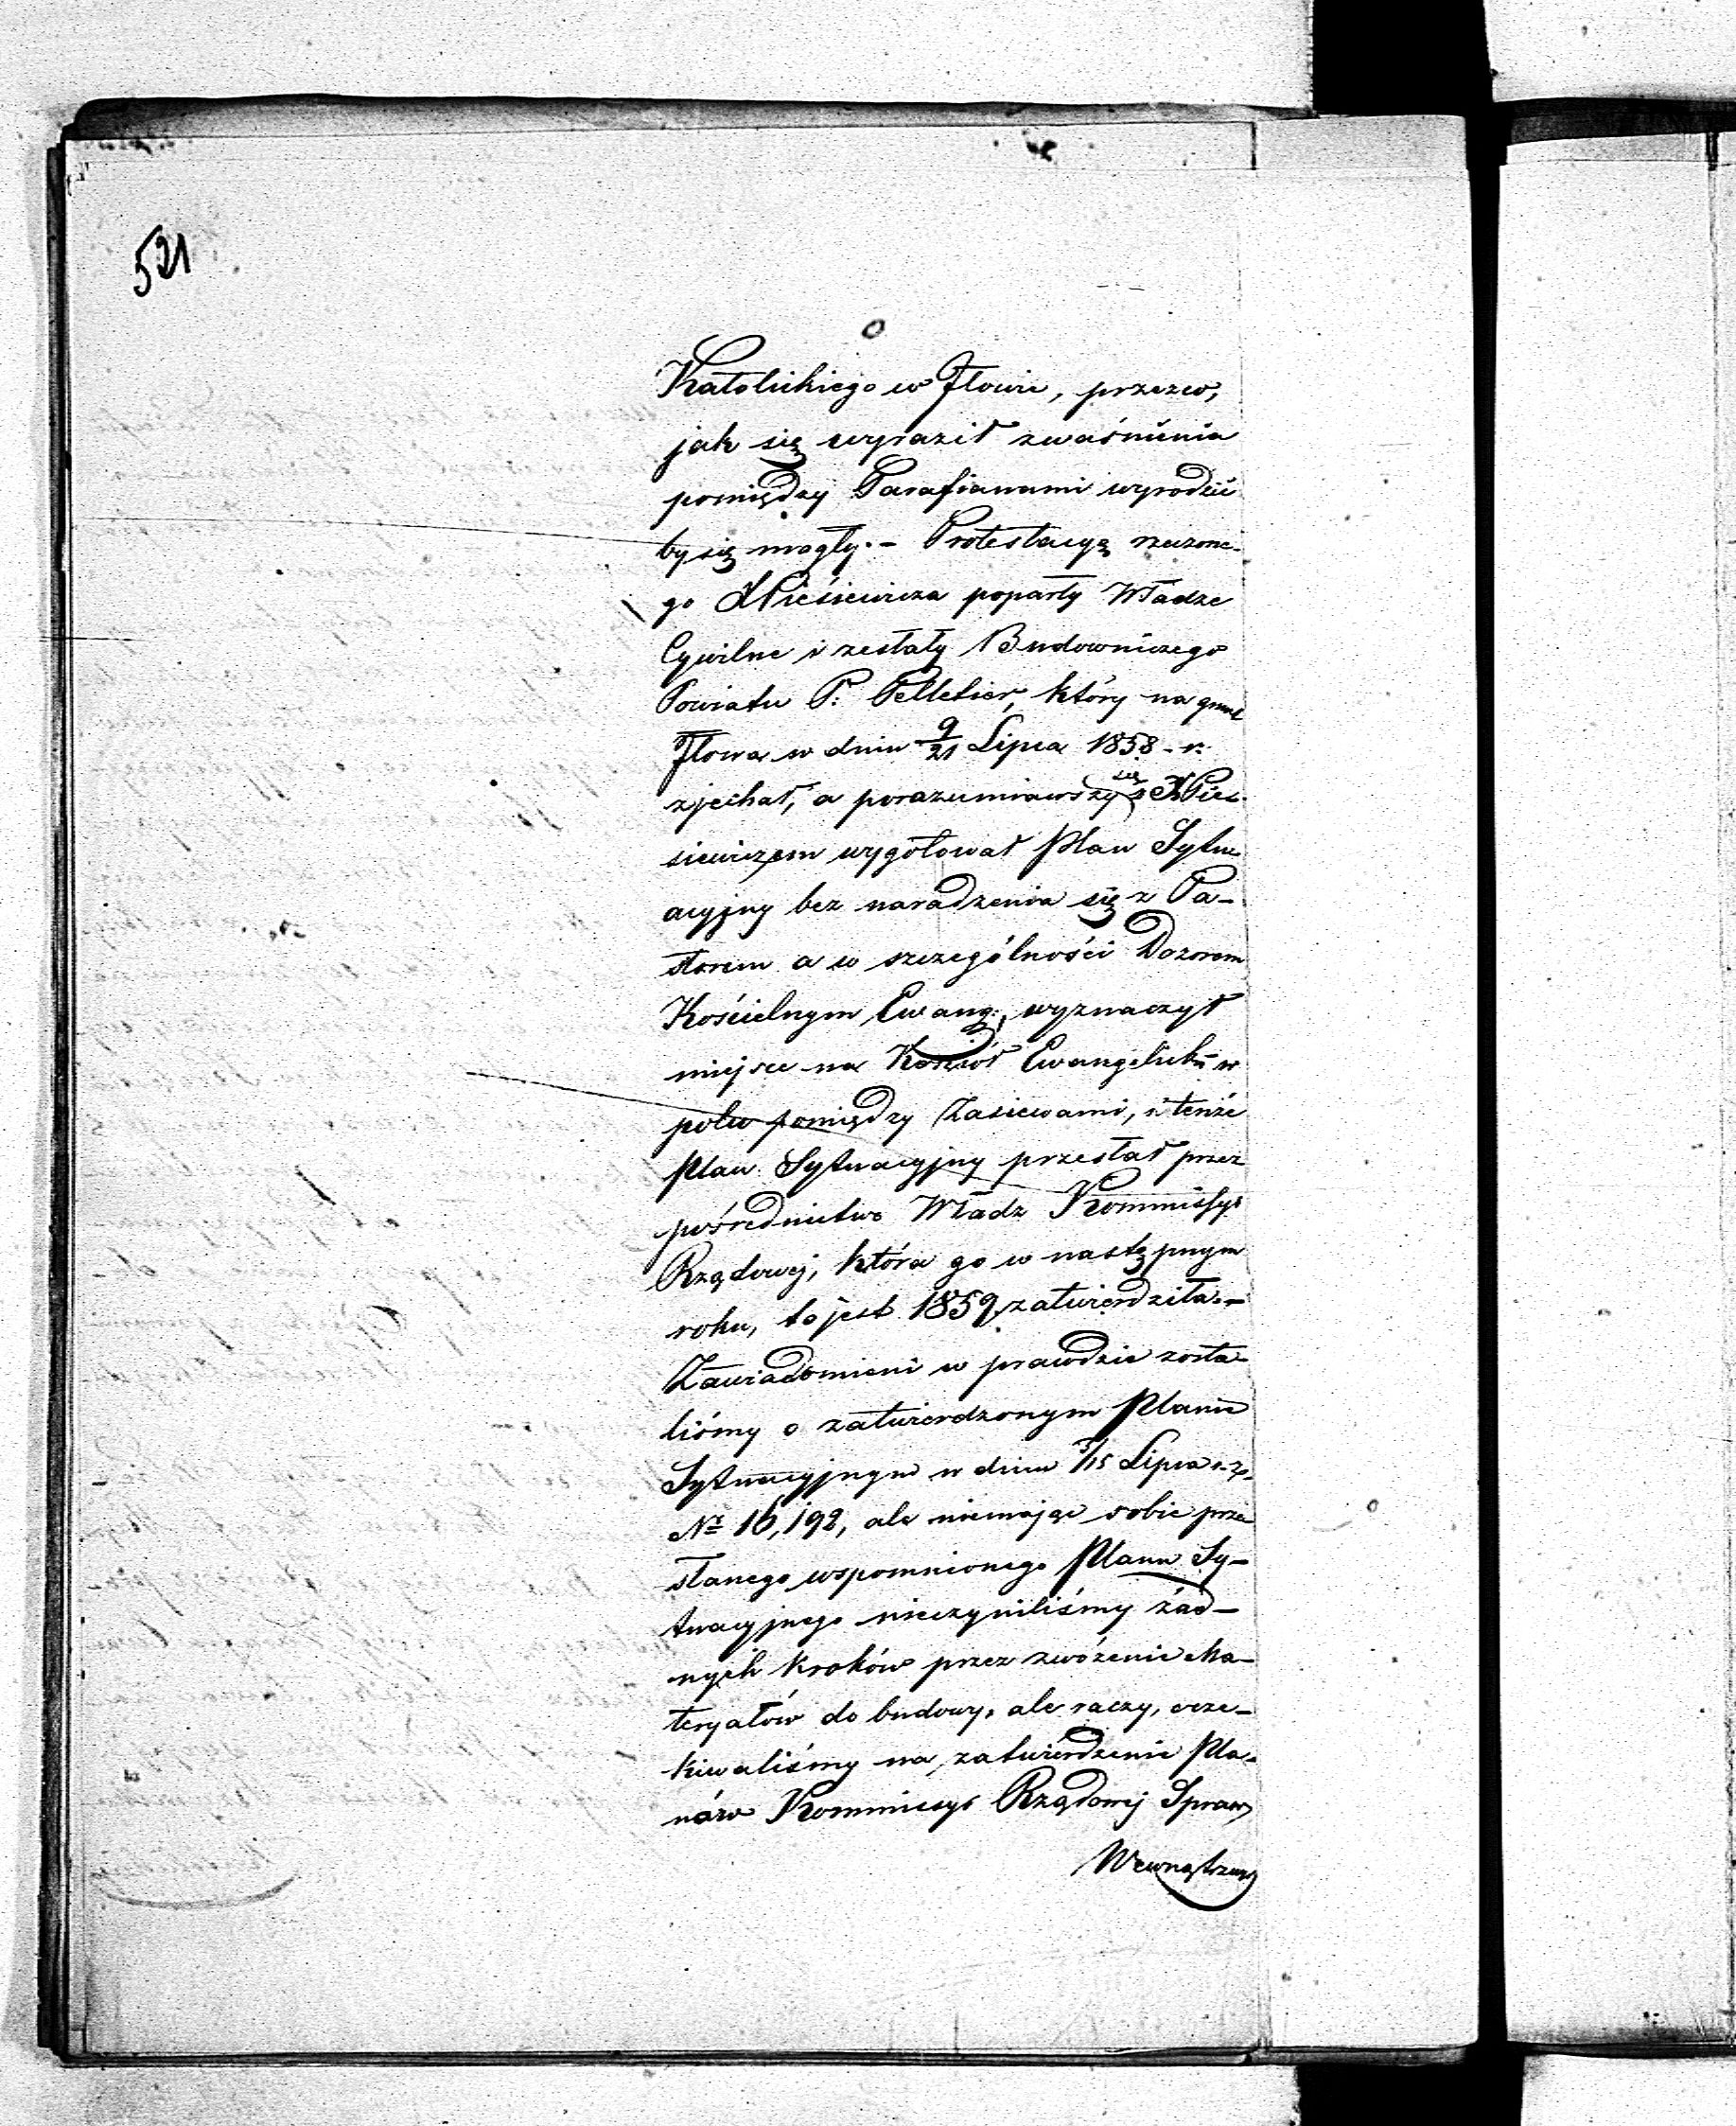 521
Katolickiego w Iłowie, przezco,
jak się wyraził zwaśnienia
pomiędzy Parafianami wyrodzić
by się mogły.- Protestacyą rzeczone-
go X Pieśiewicza poparły Władze
Cywilne i zesłały Budowniczego
Powiatu P: Pelletier, który na grunt
Iłowa w dniu 9/21 Lipca 1858 - r.
zjechał, a porazumiawszy się z X Pies-
siewiczem wygotował Plan Sytu
acyjny bez naradzenia się z Pa-
storem a w szczególności Dozorem
Kościelnym Ewang:, wyznaczył
miejsce na Kościół Ewangelicki w
polu pomiędzy Zasiewami, i tenże
Plan Sytuacyjny przesłał przez
pośrednictwo Władz Kommissyi
Rządowej, która go w następnym
roku, to jest 1859 zatwierdziła.-
Zawiadomieni w prawdzie zosta-
liśmy o zatwierdzonym Planie
Sytuacyjnym w dniu 3/15 Lipca r. z.
Nr 16,192, ale niemając sobie prze
słanego wspomnionego Planu Sy-
tuacyjnego nieczyniliśmy żad-
nych kroków przez zwożenie Ma-
teryałów do budowy, ale raczy, ocze-
kiwaliśmy na zatwierdzenie Pla-
nów Kommissyi Rządowej Spraw
Wewnętrznych